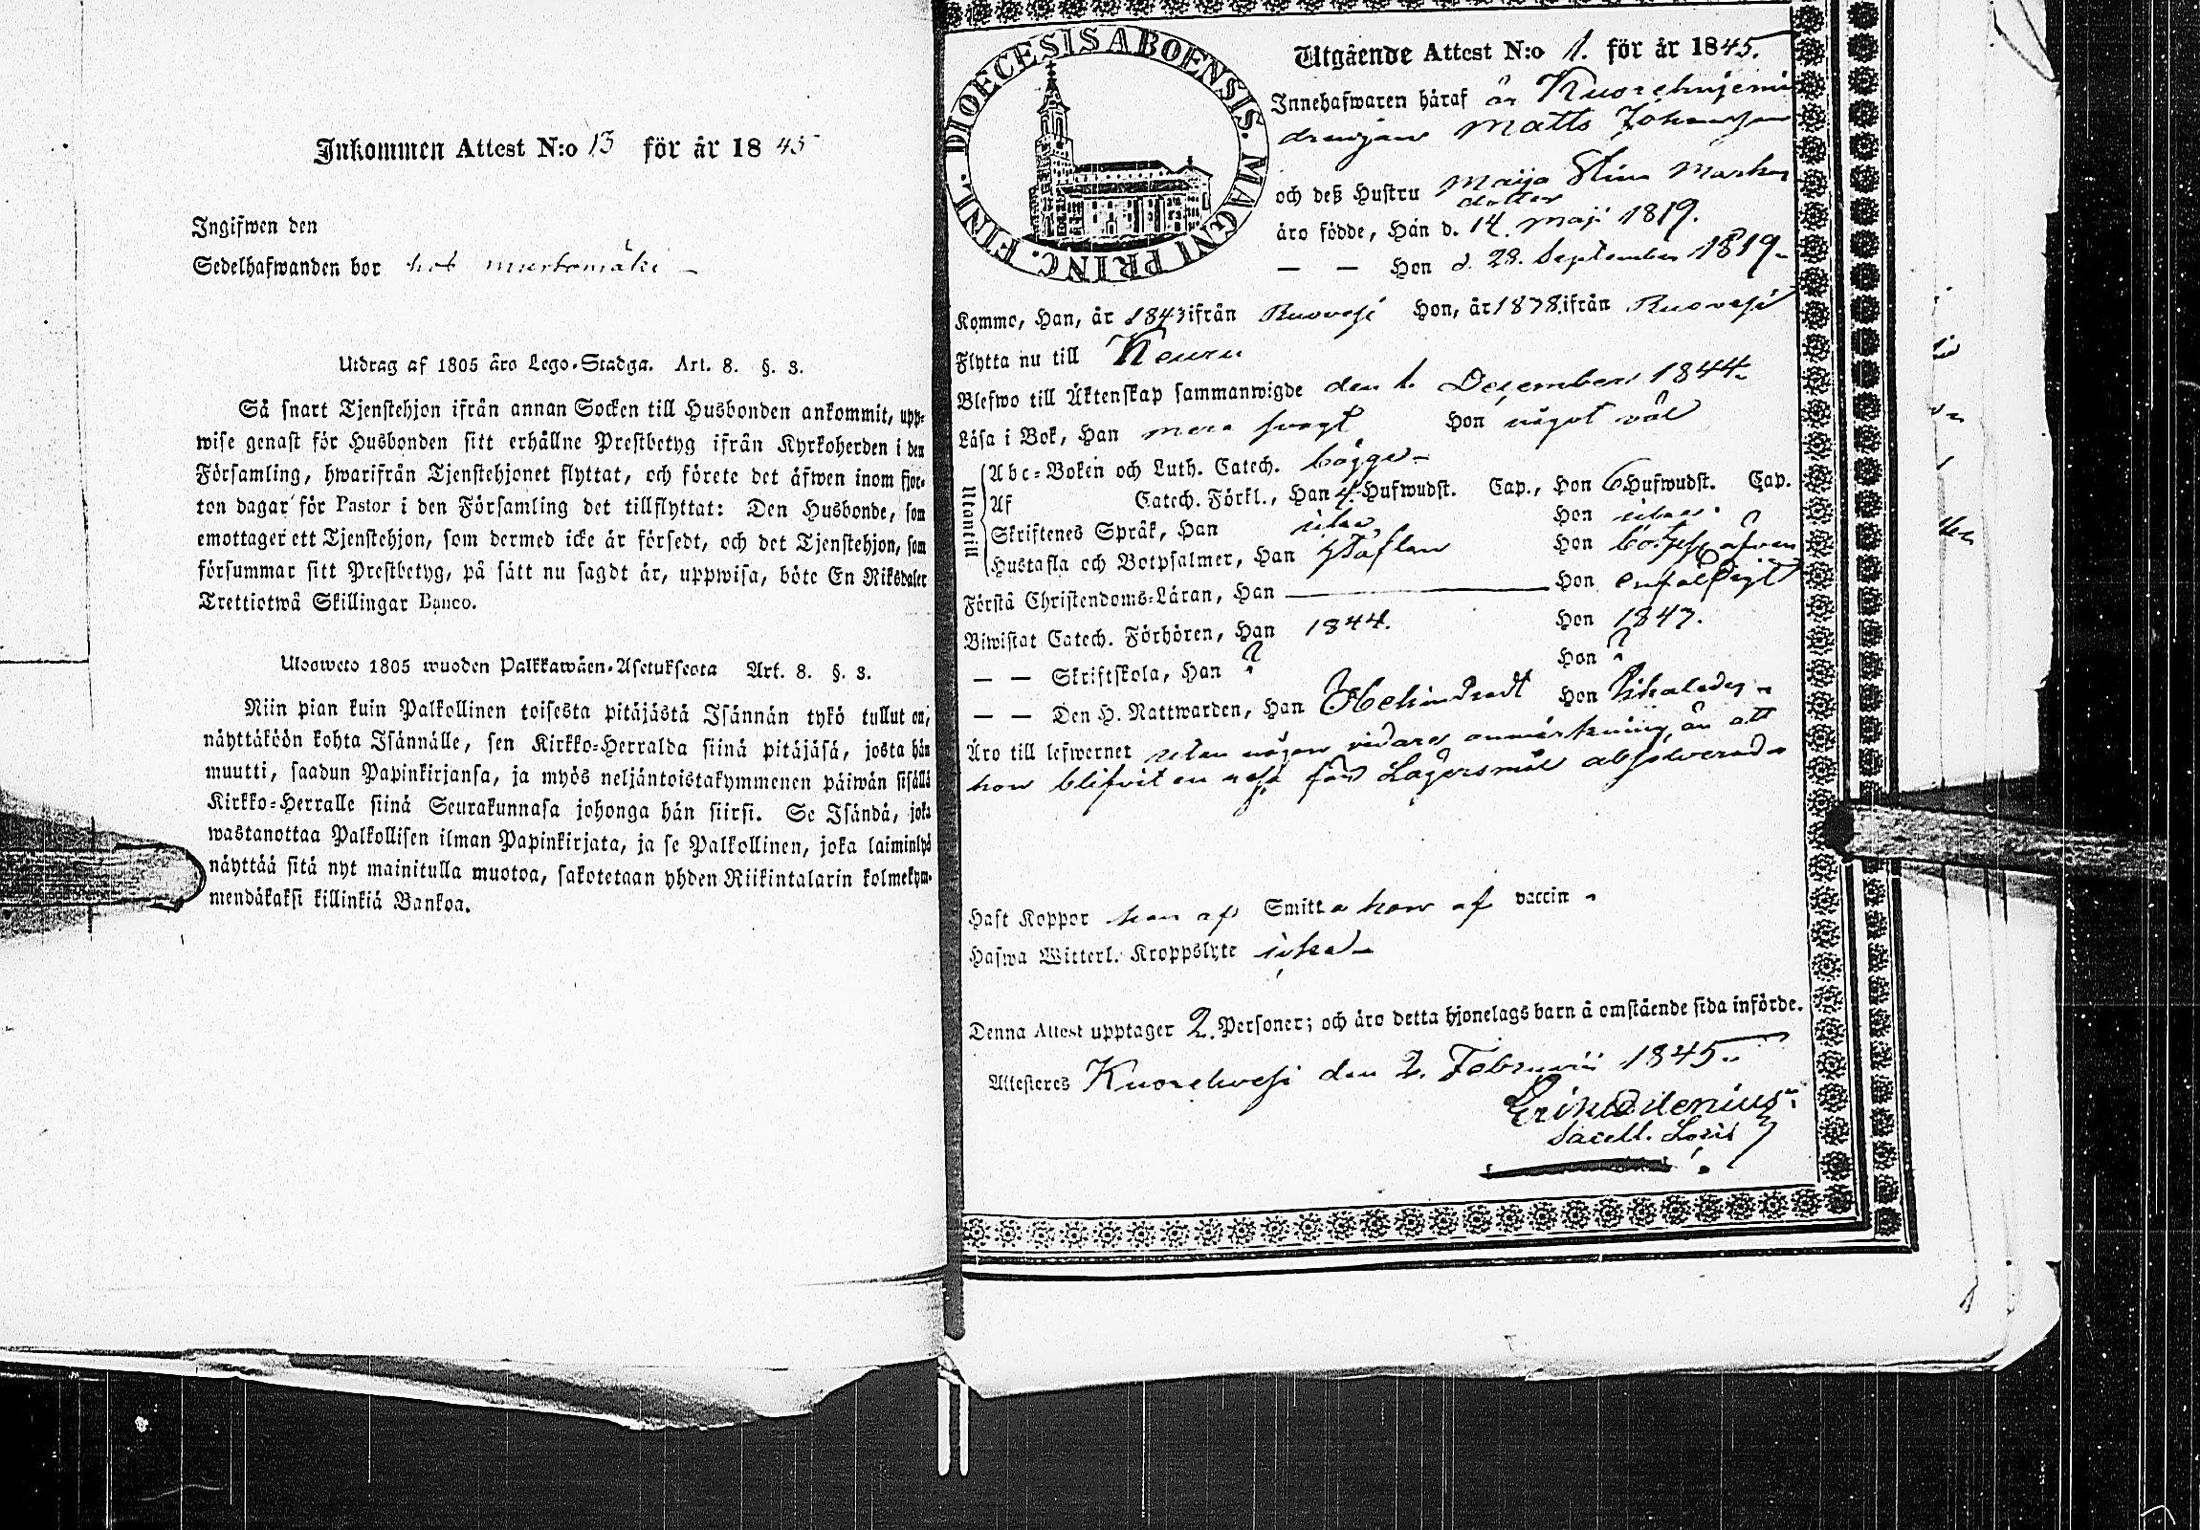 Inkommen Attest N:o 13 för år 1845
Ingifwen den
Sedelhafwanden bor hos murtomäki
Utdrag af 1805 års Lego-Stadga. Art. 8. §. 3.
Så snart Tjenstehjon ifrån annan Socken till Husbonden ankommit, upp-
wise genast för Husbonden sitt erhållne Prestbetyg ifrån Kyrkoherden i den
Församling, hwarifrån Tjenstehjonet flyttat, och förete det äfwen inom fjor-
ton dagar för Pastor i den Församling det tillflyttat: Den Husbonde, som
emottager ett Tjenstehjon, som dermed icke är försedt, och det Tjenstehjon, som
försummar sitt Prestbetyg, på sätt nu sagdt är, uppwisa, böte En Riksdaler
Trettiotwå Skillingar Banco.
Ulosweto 1805 wuoden Palkkawäen-Asetuksesta Art. 8. §. 3.
Niin pian kuin Palkollinen toisesta pitäjästä Isännän tykö tullut on,
näyttäköön kohta Isännälle, sen Kirkko-Herralda siinä pitäjäsä, josta hän
muutti, saadun Papinkirjansa, ja myös neljäntoistakymmenen päiwän sisällä
Kirkko-Herralle siinä Seurakunnasa johonga hän siirsi. Se Isändä, joka
wastanottaa Palkollisen ilman Papinkirjata, ja se Palkollinen, joka laiminlyö
näyttää sitä nyt mainitulla muotoa, sakotetaan yhden Riikintalarin kolmekym-
mendäkaksi killinkiä Bankoa.
DIOECESIS ABOENSIS. MAGNI PRINC. FINL.
Utgående Attest N:o 1. för år 1845.
Innehafwaren häraf är
drängen Matts Johansson
och deß Hustru Maija Stina Markus
dotter
äro födde, Han d. 14. Maji 1819.
— — Hon d. 28. September 1819
Komme, Han, år 1843 ifrån Ruovesi Hon, år 1878 ifrån Ruovesi
Flytta nu till Keuru
Blefwo till Äktenskap sammanwigde den 1. December 1844
Läsa i Bok, Han mera svagt Hon något väl
Utantill
Abc-Boken och Luth. Catech. bägge
Af Catech. Förkl., Han 4 Hufwudst. Cap., Hon 6 Hufwudst. Cap.
Skriftenes Språk, Han utan Hon utan
Hustafla och Botpsalmer, Han Hon
Förstå Christendoms-Läran, Han — Hon enfaldigt
Biwistat Catech. Förhören, Han 1844. Hon 1847.
— — Skriftskola, Han ? Hon ?
— — Den H. Nattwarden, Han Hon likaledes
Äro till lefwernet utan någon vidare anmärkning, än att
hon blifvit en resa för Lägersmål absolverad
Haft Koppor han af Smitta hon af vaccin
Hafwa Witterl. Kroppslyte icke
Denna Attest upptager 2. Personer; och äro detta hjonelags barn å omstående sida införde.
Attesteres Kuorehvesi den 2. Februarii 1845
Sacell. Loci